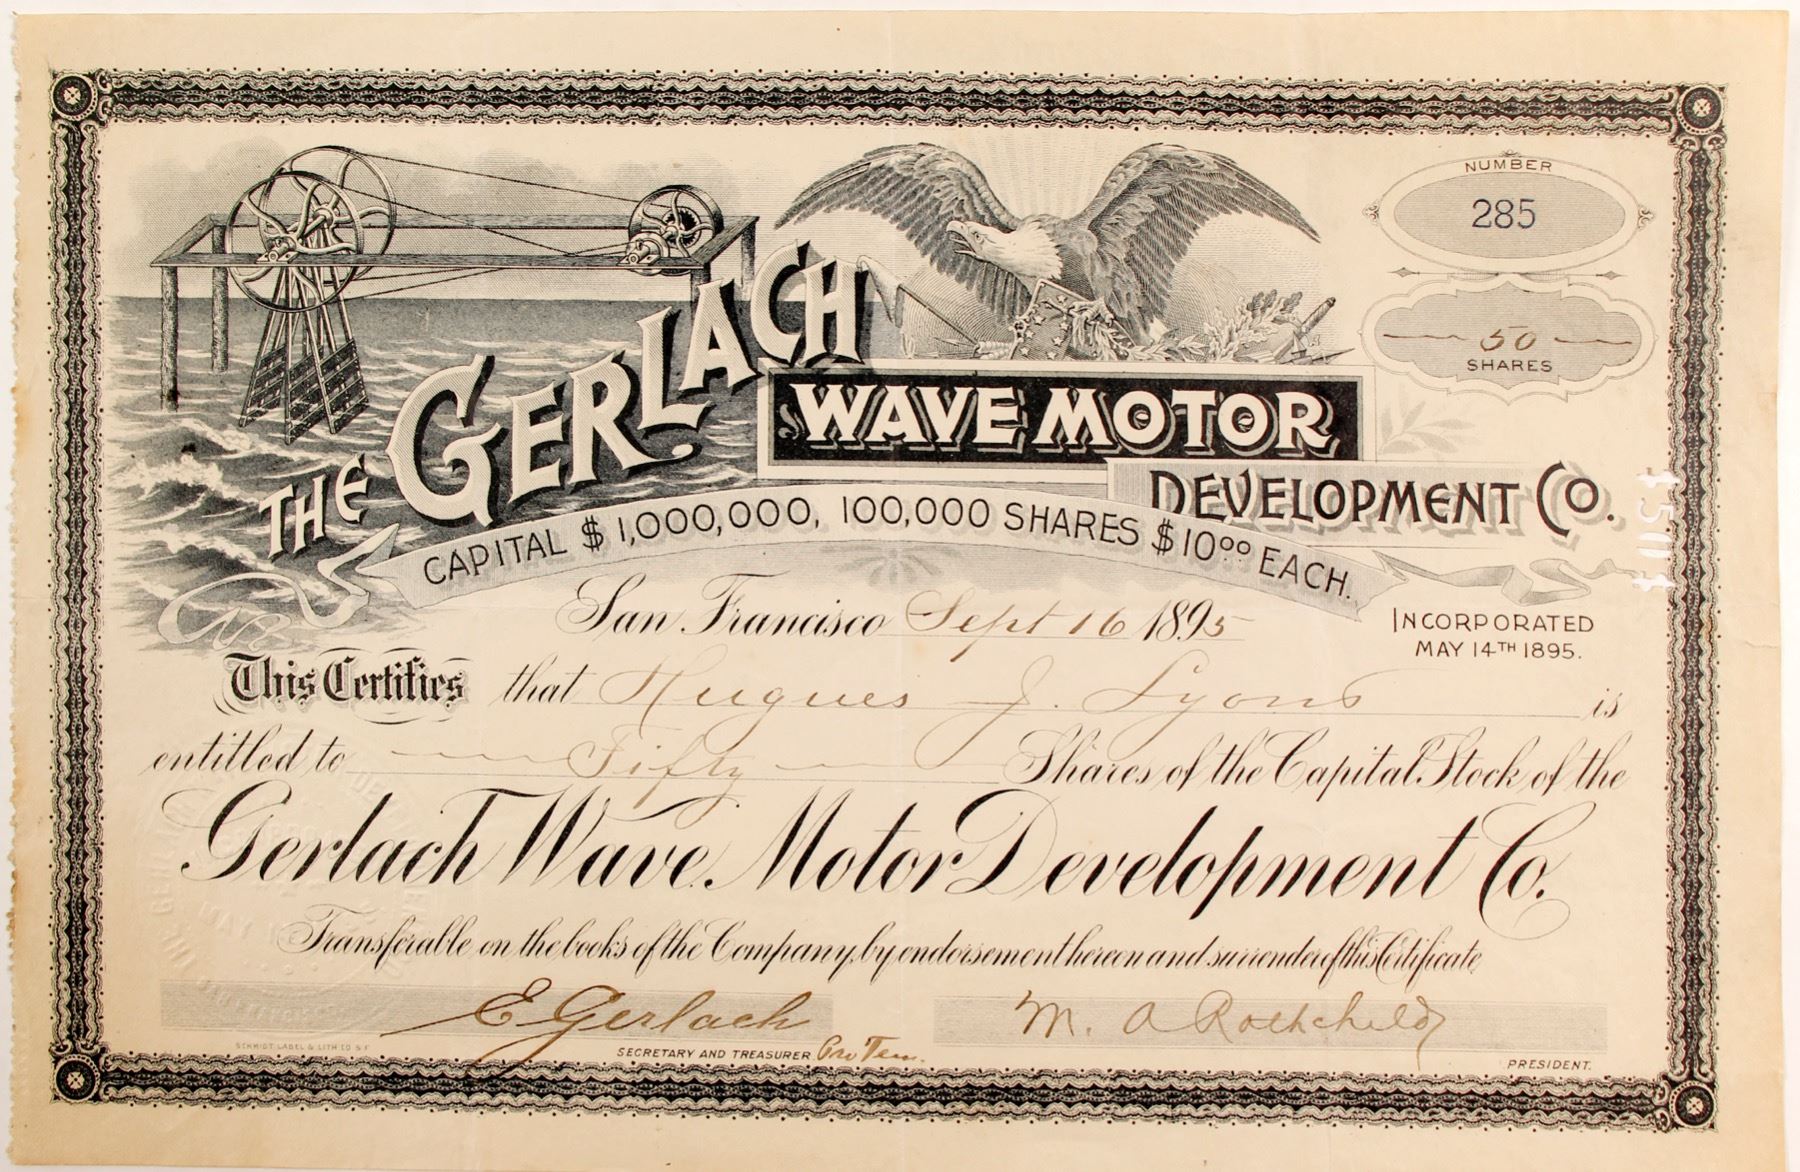 NUMBER
285
50
SHARES
THE GERLACH
WAVE MOTOR
DEVELOPMENT CO.
CAPITAL $1,000,000, 100,000 SHARES $10.00 EACH.
San Francisco Sept 16 1895
INCORPORATED
MAY 14TH 1895.
This Certifies that Hugues J. Lyons is
entitled to Fifty Shares of the Capital Stock of the
Gerlach Wave Motor Development Co.
Transferable on the books of the Company, by endorsement hereon and surrender of this Certificate
E Gerlach
M. A Rothchild
SCHMIDT LABEL & LITH. CO. S.F.
SECRETARY AND TREASURER Pro Tem.
PRESIDENT.